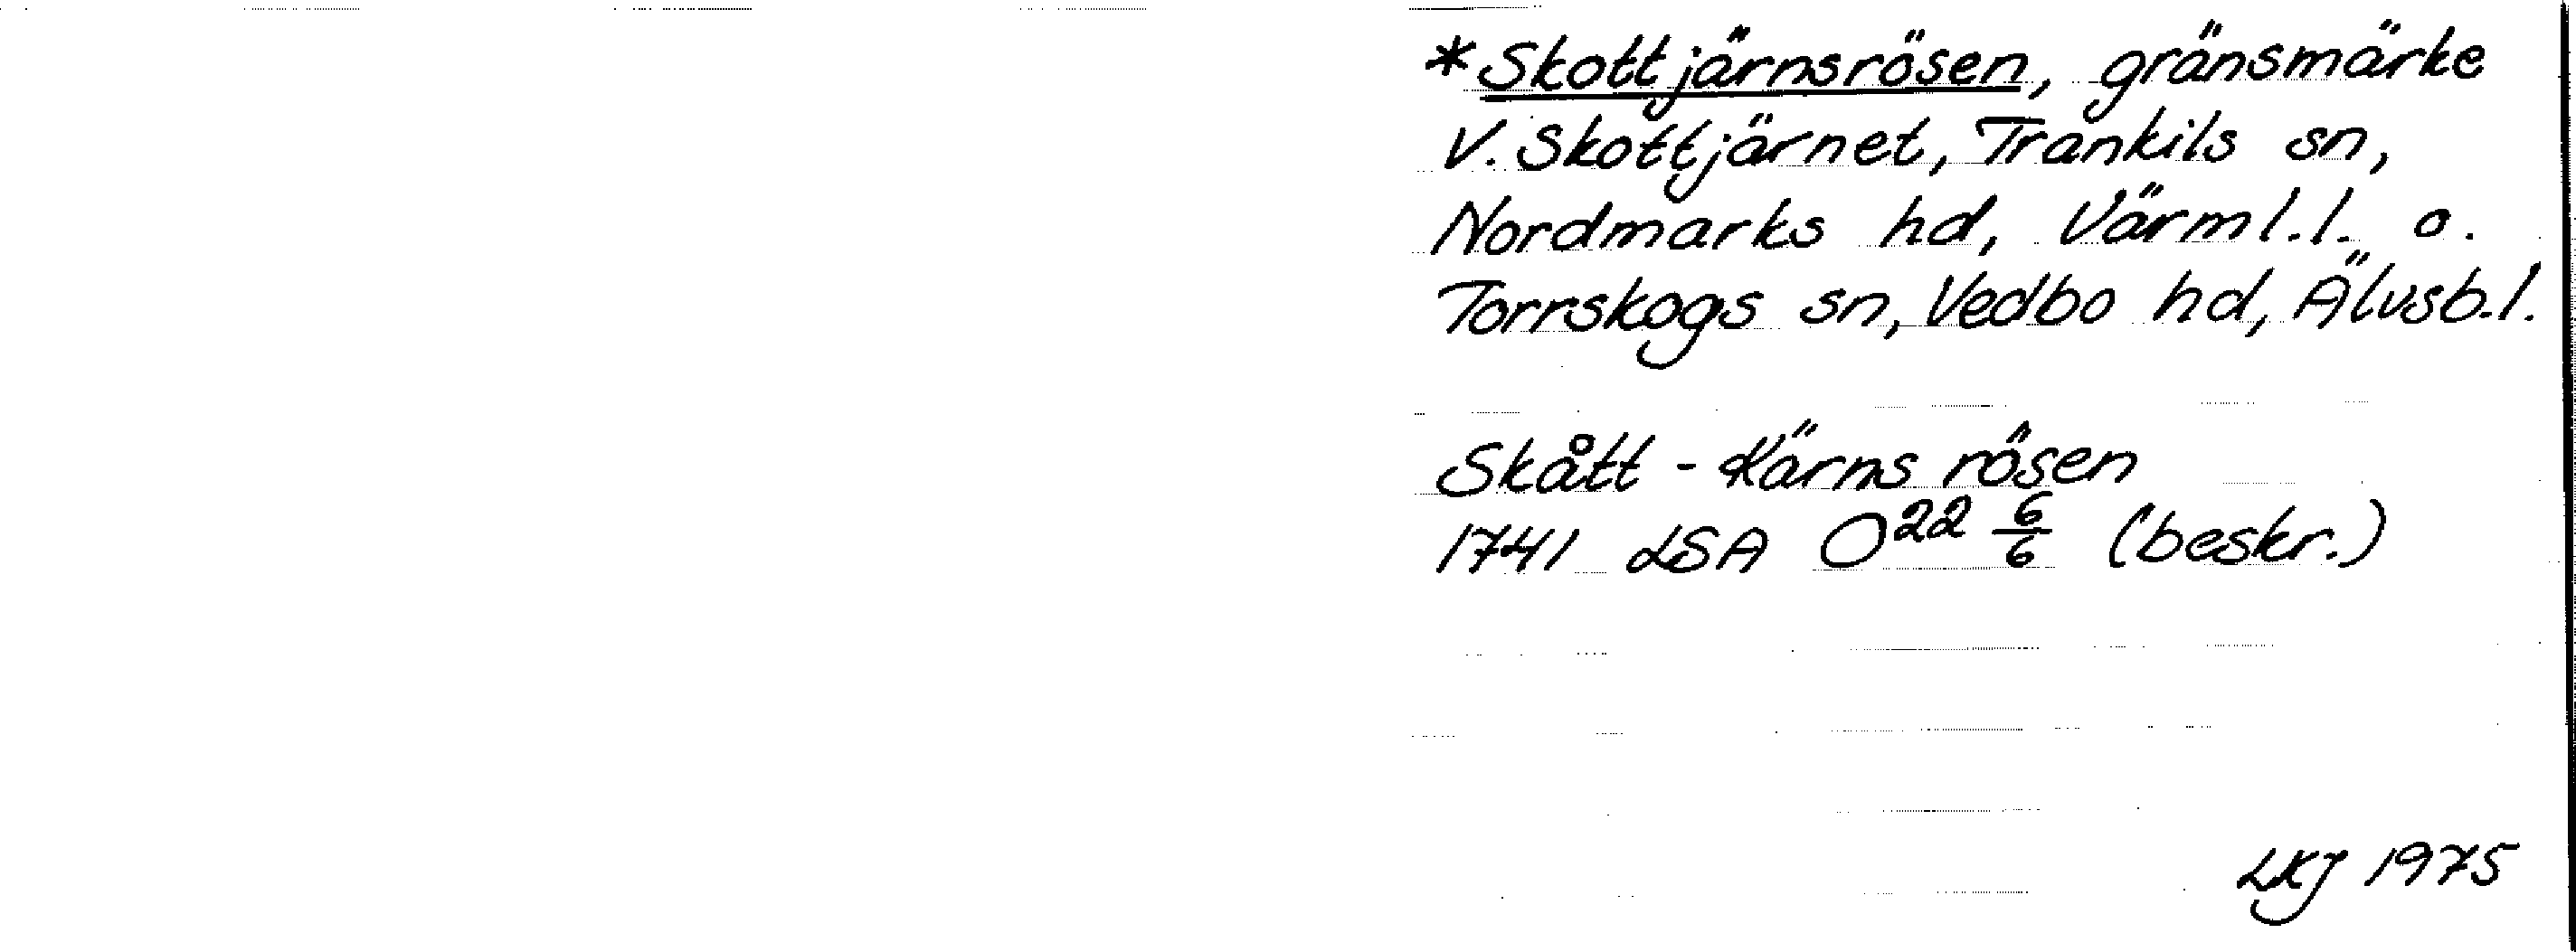 *Skottjärnsrösen, gränsmärke
V. Skottjärnet, Trankils sn,
Nordmarks hd, Värml.l. o.
Torrskogs sn, Vedbo hd, Älvsb.l.
Skått-Kärns rösen
1741 LSA O²² 6/6 (beskr.)
LKJ 1975